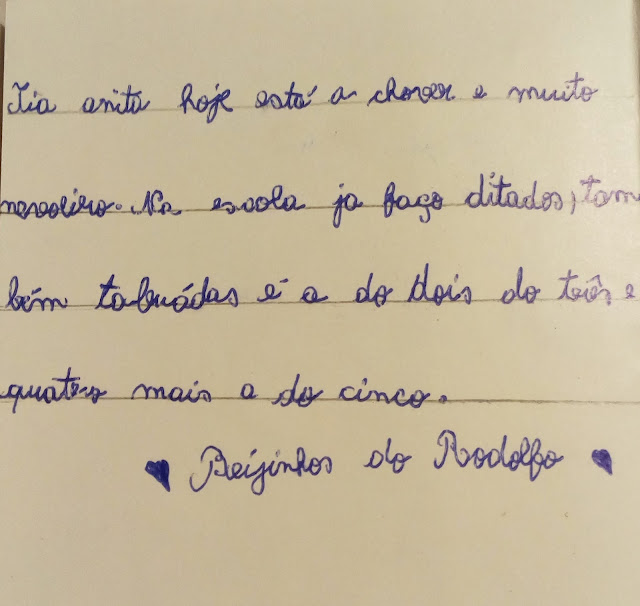 Tia anita hoje está a chover e muito
nevoeiro. Na escola ja faço ditados, tam
bém tabuádas é a do dois do três e
quatro mais a do cinco.
Beijinhos do Rodolfo